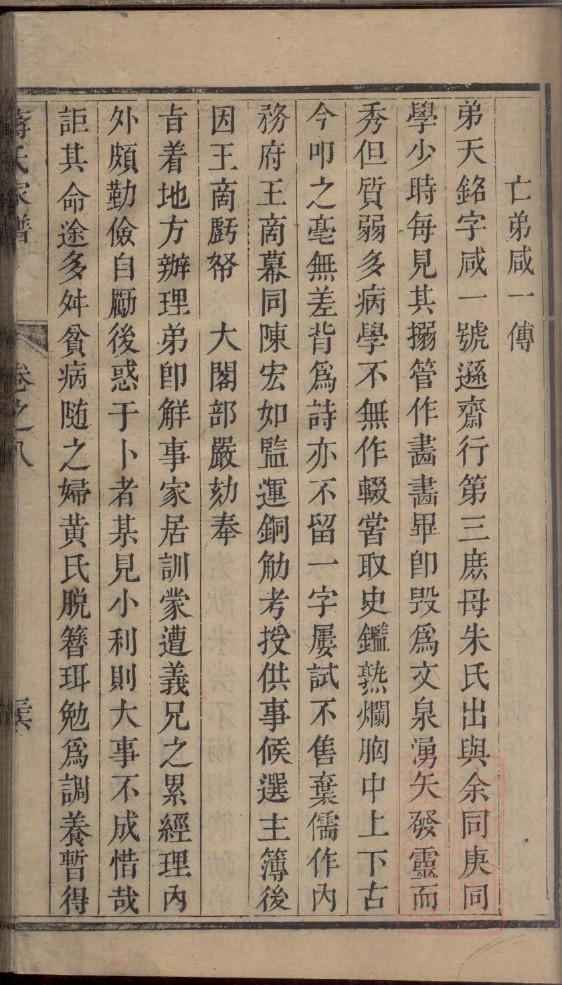 亡弟咸一傳
弟天銘字咸一號遜齋行第三庶母朱氏出與余同庚同
學少時每見其搦管作畵畵畢卽毀爲文泉湧矢發靈而
秀但質弱多病學不無作輟甞取史鑑熟爛胸中上下古
今叩之毫無差背爲詩亦不留一字屢試不售棄儒作內
務府王商幕同陳宏如監運銅觔考授供事候選主簿後
因王商虧帑 大閣部嚴劾奉
旨着地方辦理弟卽觧事家居訓蒙遭義兄之累經理內
外頗勤儉自勵後惑于卜者某見小利則大事不成惜哉
詎其命途多舛貧病随之婦黃氏脱簪珥勉爲調養暫得
蔣氏家譜 卷之八